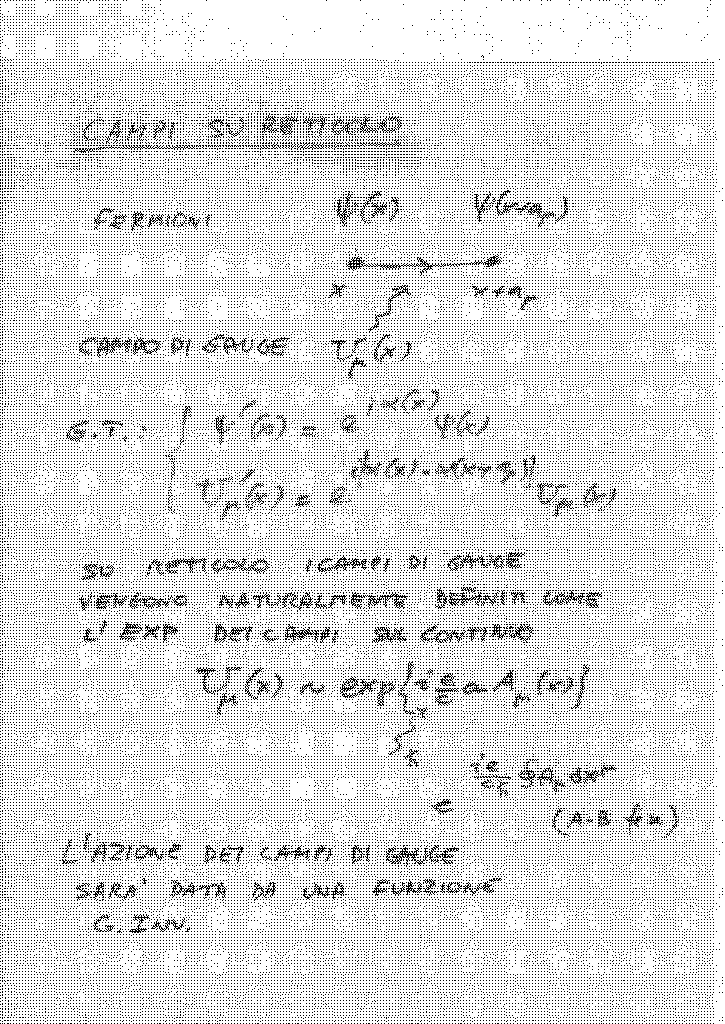 CAMPI SU RETICOLO
FERMIONI ψ(x) ψ(x+aμ)
x x+aμ
CAMPO DI GAUGE Uμ(x)
G.T.: { ψ'(x) = e^{iα(x)} ψ(x)
U'μ(x) = e^{i[α(x)-α(x+aμ)]} Uμ(x)
SU RETICOLO I CAMPI DI GAUGE
VENGONO NATURALMENTE DEFINITI COME
L'EXP DEI CAMPI SUL CONTINUO
Uμ(x) ~ exp{i e/c a Aμ(x)}
ħ
e^{ie/cħ ∮Aμ dxμ}
(A-B fx)
L'AZIONE DEI CAMPI DI GAUGE
SARA' DATA DA UNA FUNZIONE
G. INV.